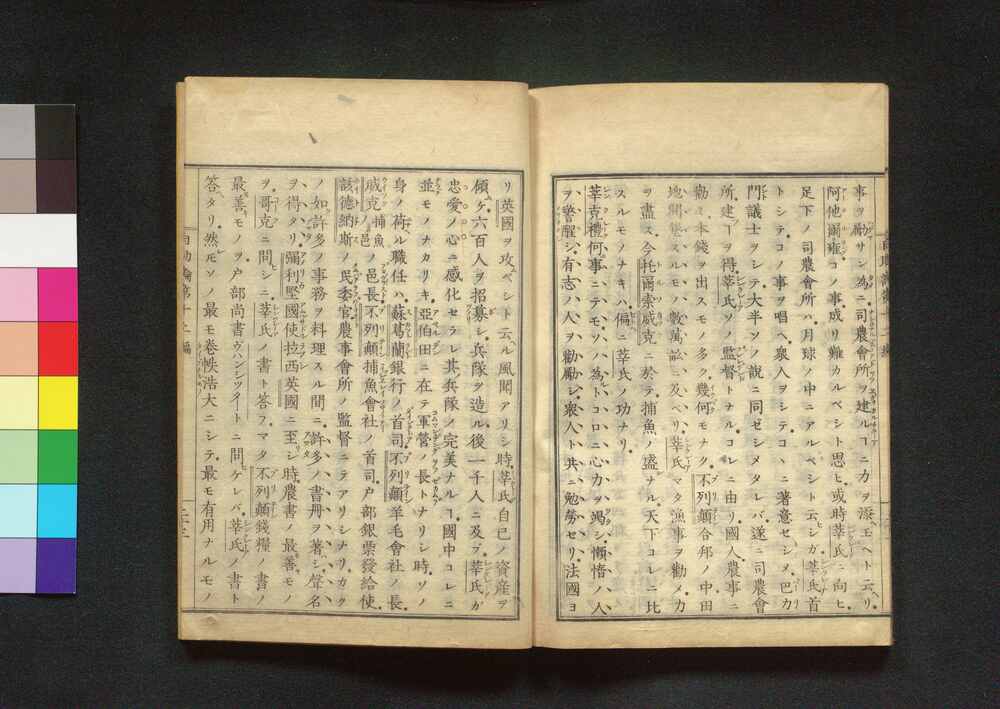 事ヲ勵サン為ニ司農會所ヲ建ルコニ力ヲ添玉ヘト云ヘリ
阿他爾雍コノ事成リ難カルベシト思ヒ或時莘氏ニ向ヒ
足下ノ司農會所ハ月球ノ中ニアルベシト云ヒシガ莘氏首
トシテコノ事ヲ唱ヘ衆人ヲシテコヽニ著意セシメ巴力
門議士ヲシテ大半ソノ説ニ同ゼシメタレバ遂ニ司農會
所建ーヲ得莘氏ソノ監督トナルコレニ由リ國人農事ニ
勸ミ本錢ヲ出スモノ多ク幾何モナク不列顛合邦ノ中田
地開墾スルモノ數萬ニ及ベリ莘氏マタ漁事ヲ勸メ力
ヲ盡ス今托爾索威克ニ於テ捕魚ノ盛ナル天下コレニ比
スルモノナキハ偏ニ莘氏ノ功ナリ
莘克禮何事ニテモソノ為ストコロニ心力ヲ竭シ懶惰ノ人
ヲ警醒シ有志ノ人ヲ勸勵シ衆人ト共ニ勉勞セリ法國ヨ
リ英國ヲ攻ベシト云ル風聞アリシ時莘氏自己ノ資産ヲ
傾ケ六百人ヲ招募シ兵隊ヲ造ル後一千人ニ及ブ莘氏ガ
忠愛ノ心ニ感化セラレ其兵隊ノ完美ナルー國中コレニ
並ブモノナカリキ亞伯田ニ在テ軍營ノ長トナリシ時ソノ
身ノ荷ル職任ハ蘇葛蘭銀行ノ首司不列顛羊毛會社ノ長
威克捕魚ノ邑ノ邑長不列顛捕魚會社ノ首司戸部銀票發給使
該德納斯ノ民委官農事會所ノ監督ニテアリシナリカク
ノ如許多ノ事務ヲ料理スル間ニ許多ノ書冊ヲ著シ聲名
ヲ得タリ彌利堅國使拉西英國ニ至シ時農書ノ最善モノ
ヲ哥克ニ問シニ莘氏ノ書ト答フマタ不列顛錢糧ノ書ノ
最善モノヲ戸部尚書ヴハンシツイートニ問ケレバ莘氏ノ書ト
答タリ然モソノ最モ卷帙浩大ニシテ最モ有用ナルモノ